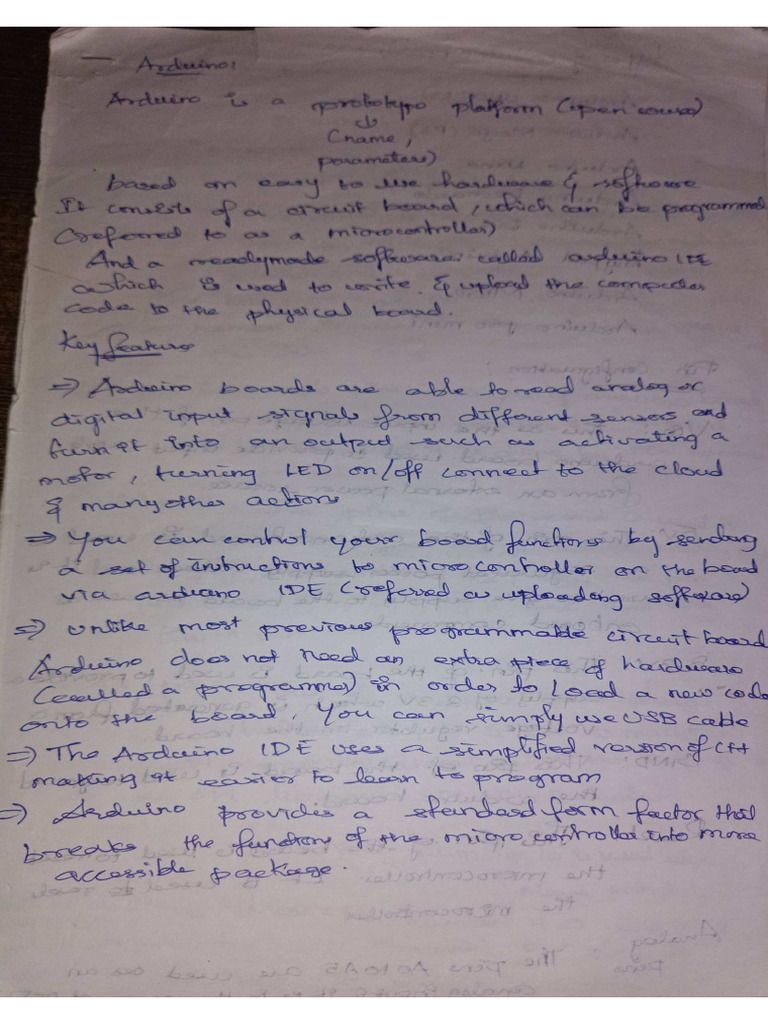 Arduino:
Arduino is a prototype platform (open source)
↓
(name,
parameters)
based on easy to use hardware & software
It consists of a circuit board, which can be programmed
(referred to as a microcontroller)
And a readymade software called arduino IDE
which is used to write & upload the computer
code to the physical board.
Key features
⇒ Arduino boards are able to read analog or
digital input signals from different sensors and
turn it into an output such as activating a
motor, turning LED on/off connect to the cloud
& many other actions
⇒ You can control your board functions by sending
a set of instructions to microcontroller on the board
via arduino IDE (referred as uploading software)
⇒ Unlike most previous programmable circuit board
Arduino does not need an extra piece of hardware
(called a programmer) in order to load a new code
onto the board, You can simply use USB cable
⇒ The Arduino IDE uses a simplified version of C++
making it easier to learn to program
⇒ Arduino provides a standard form factor that
breaks the functions of the micro controller into more
accessible package.